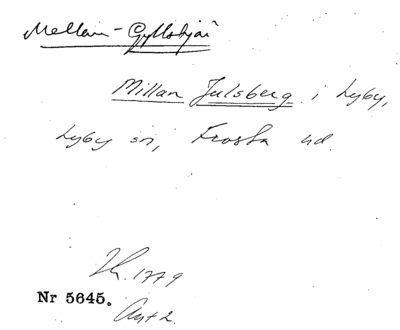 Mellan-Gyllebjär
Millan Julsberg i Lyby,
Lyby sn, Frosta hd.
1779
Nr 5645.
Akt 2.